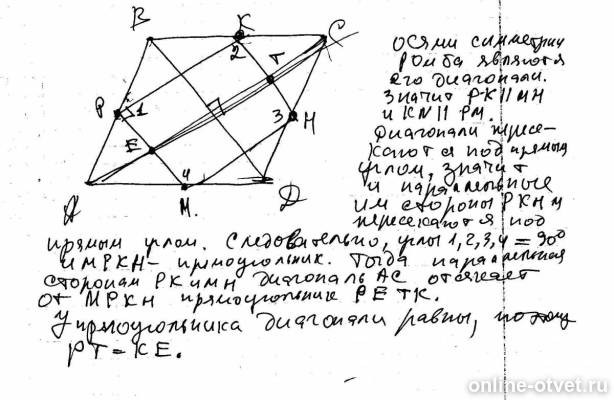 В К С
2
Т
Р 1
3 Н
Е
4
А М. D
осями симметрии
ромба являются
его диагонали.
Значит РК||МН
и КN||РМ.
Диагонали пересе-
каются под прямым
углом, значит
и параллельные
им стороны РКНМ
пересекаются под
прямым углом. Следовательно, углы 1,2,3,4 = 90°
и МРКН - прямоугольник. Тогда параллельная
сторонам РК и МН диагональ АС отсекает
от МРКН прямоугольник РЕТК.
У прямоугольника диагонали равны, поэтому
РТ = КЕ.
online-otvet.ru